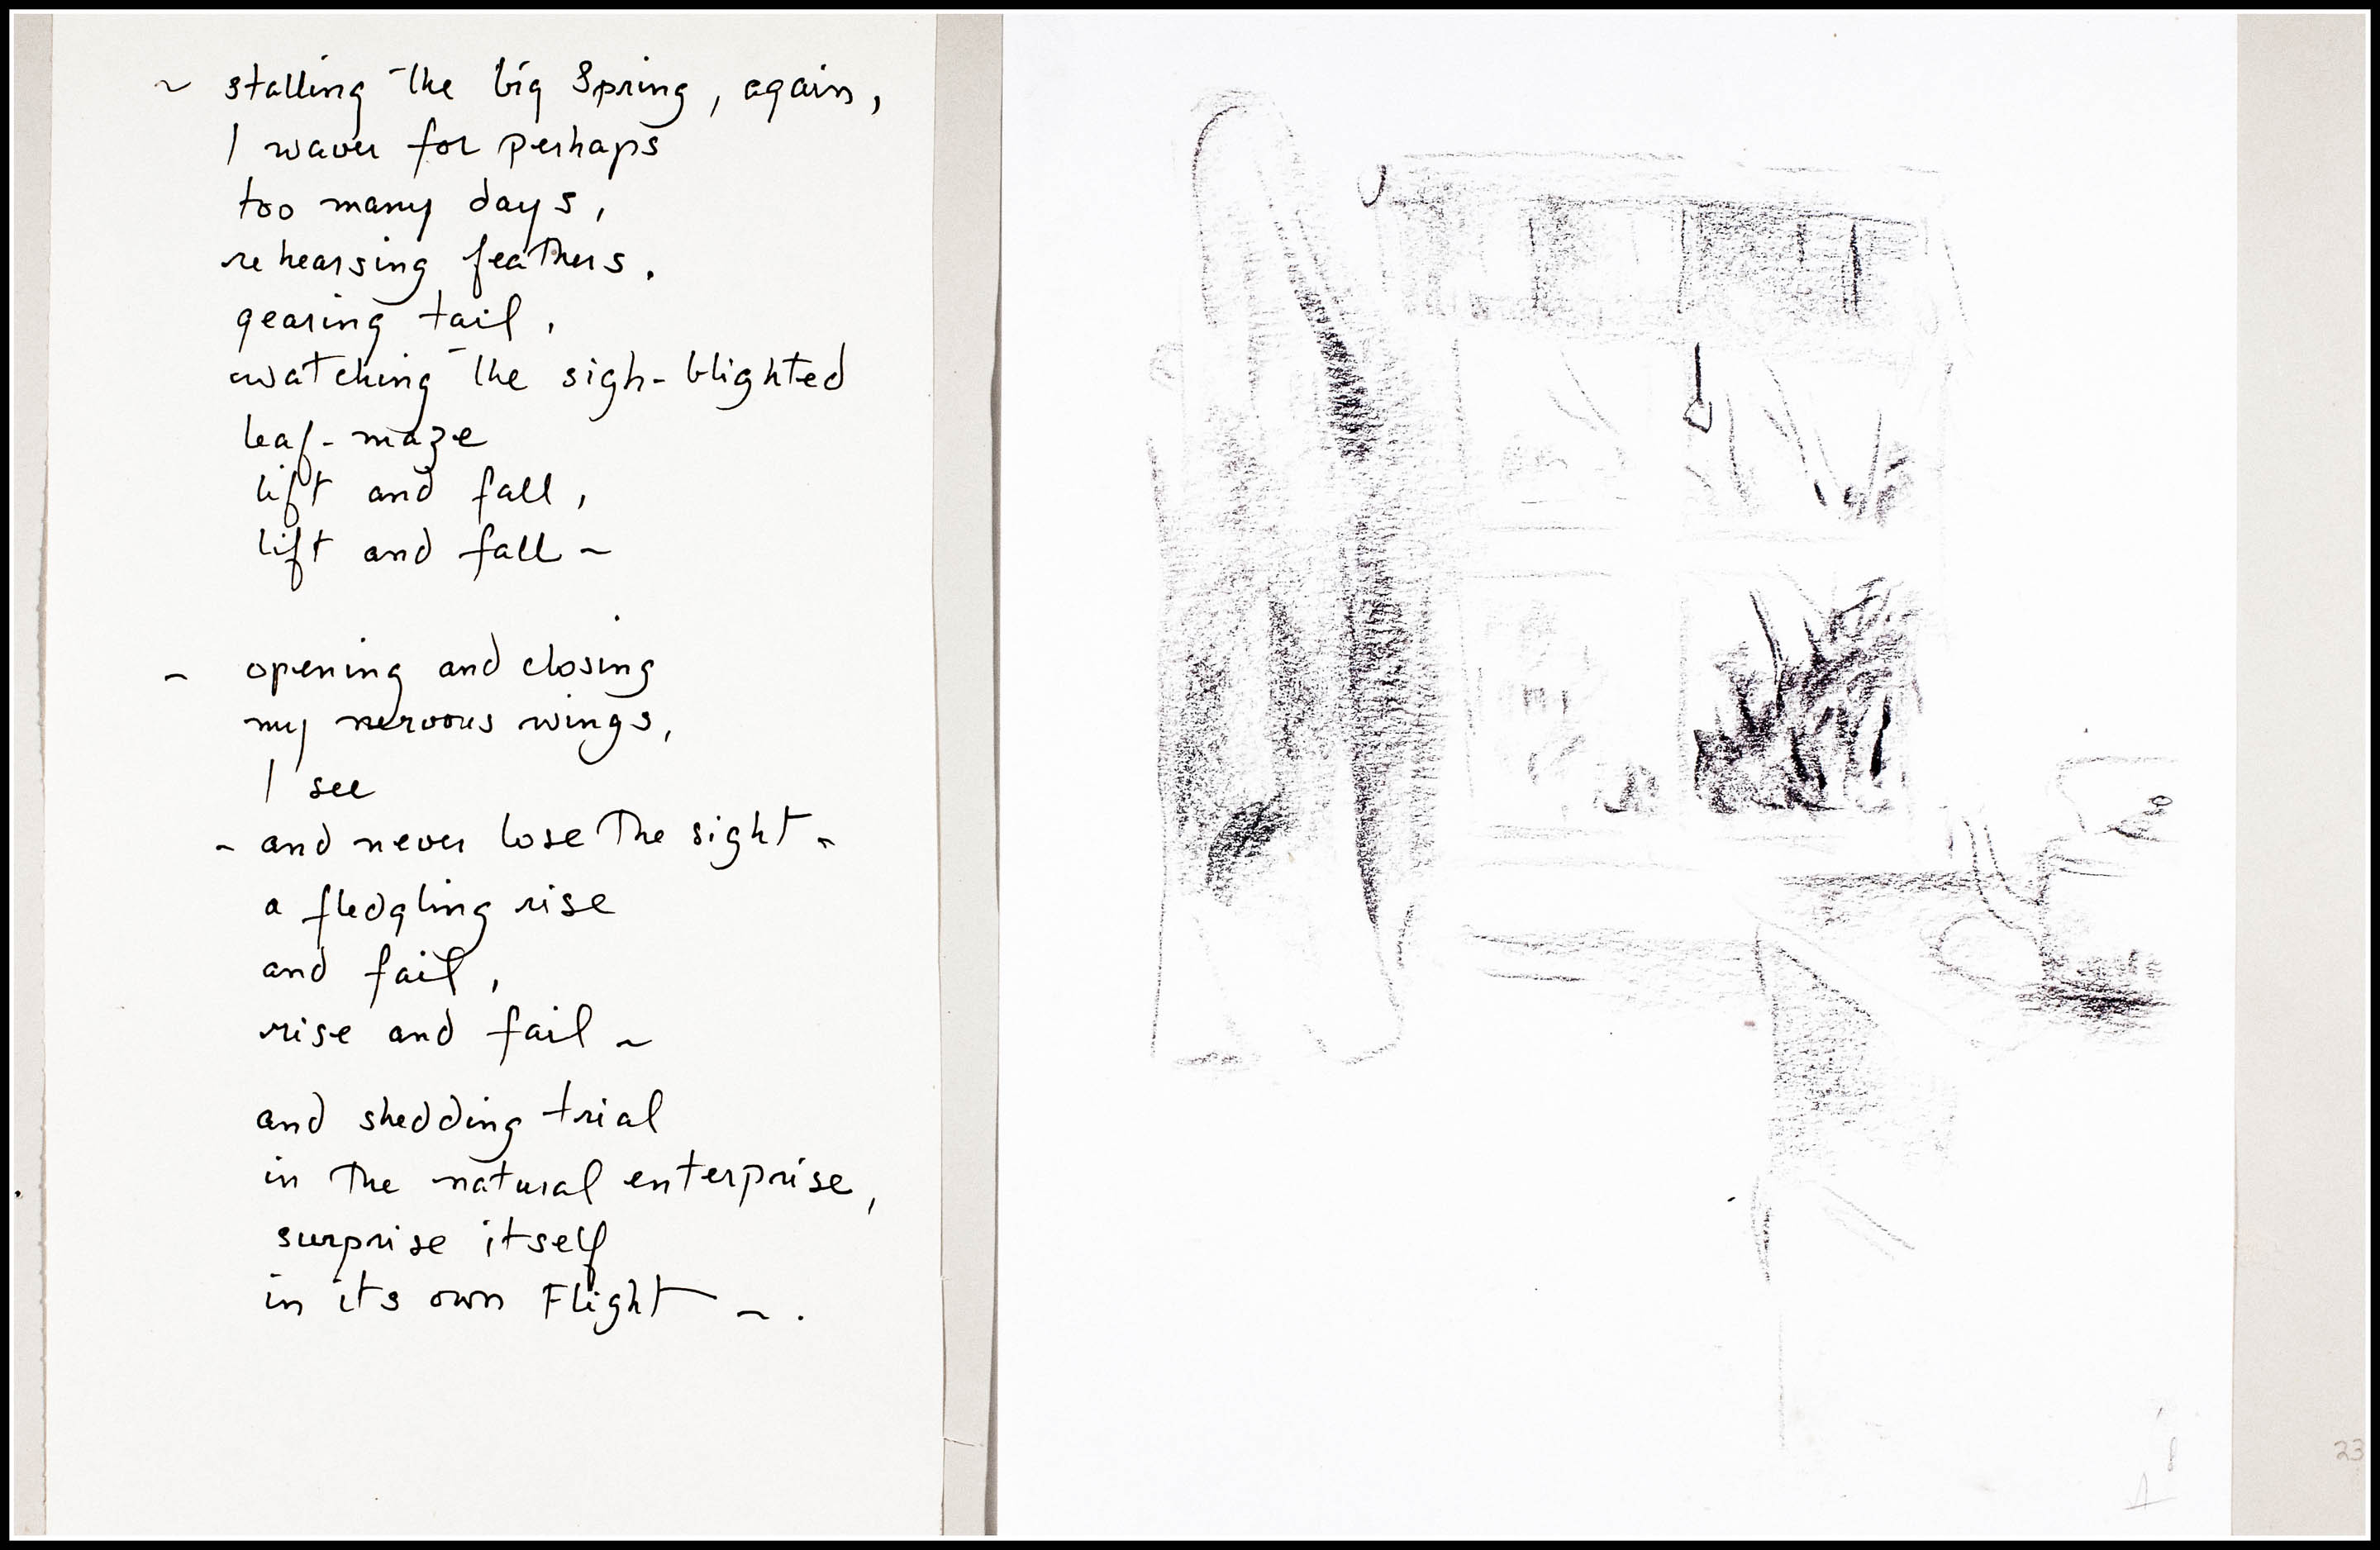 ~ stalling the big Spring, again,
I waver for perhaps
too many days,
rehearsing feathers.
gearing tail,
watching the sigh-blighted
leaf-maze
lift and fall,
lift and fall ~
- opening and closing
my nervous wings,
I see
- and never lose the sight -
a fledgling rise
and fail,
rise and fail ~
and shedding trial
in the natural enterprise,
surprise itself
in its own Flight ~.
23